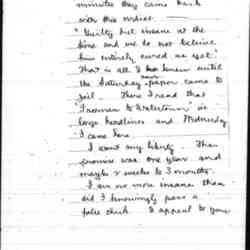 minutes they came back
with this notice -
" Guilty but insane at the
time and we do not believe
him entirely cured as yet".
That is all I knew until
the Saturday news paper came to
jail. There I read that
"Freeman to Watertown" in
large headlines and Wednesday
I came here.
I want my liberty. Their
promise was one year and
maybe 2 weeks to 3 months.
I am no more insane than
did I knowingly pass a
false check. I appeal to your